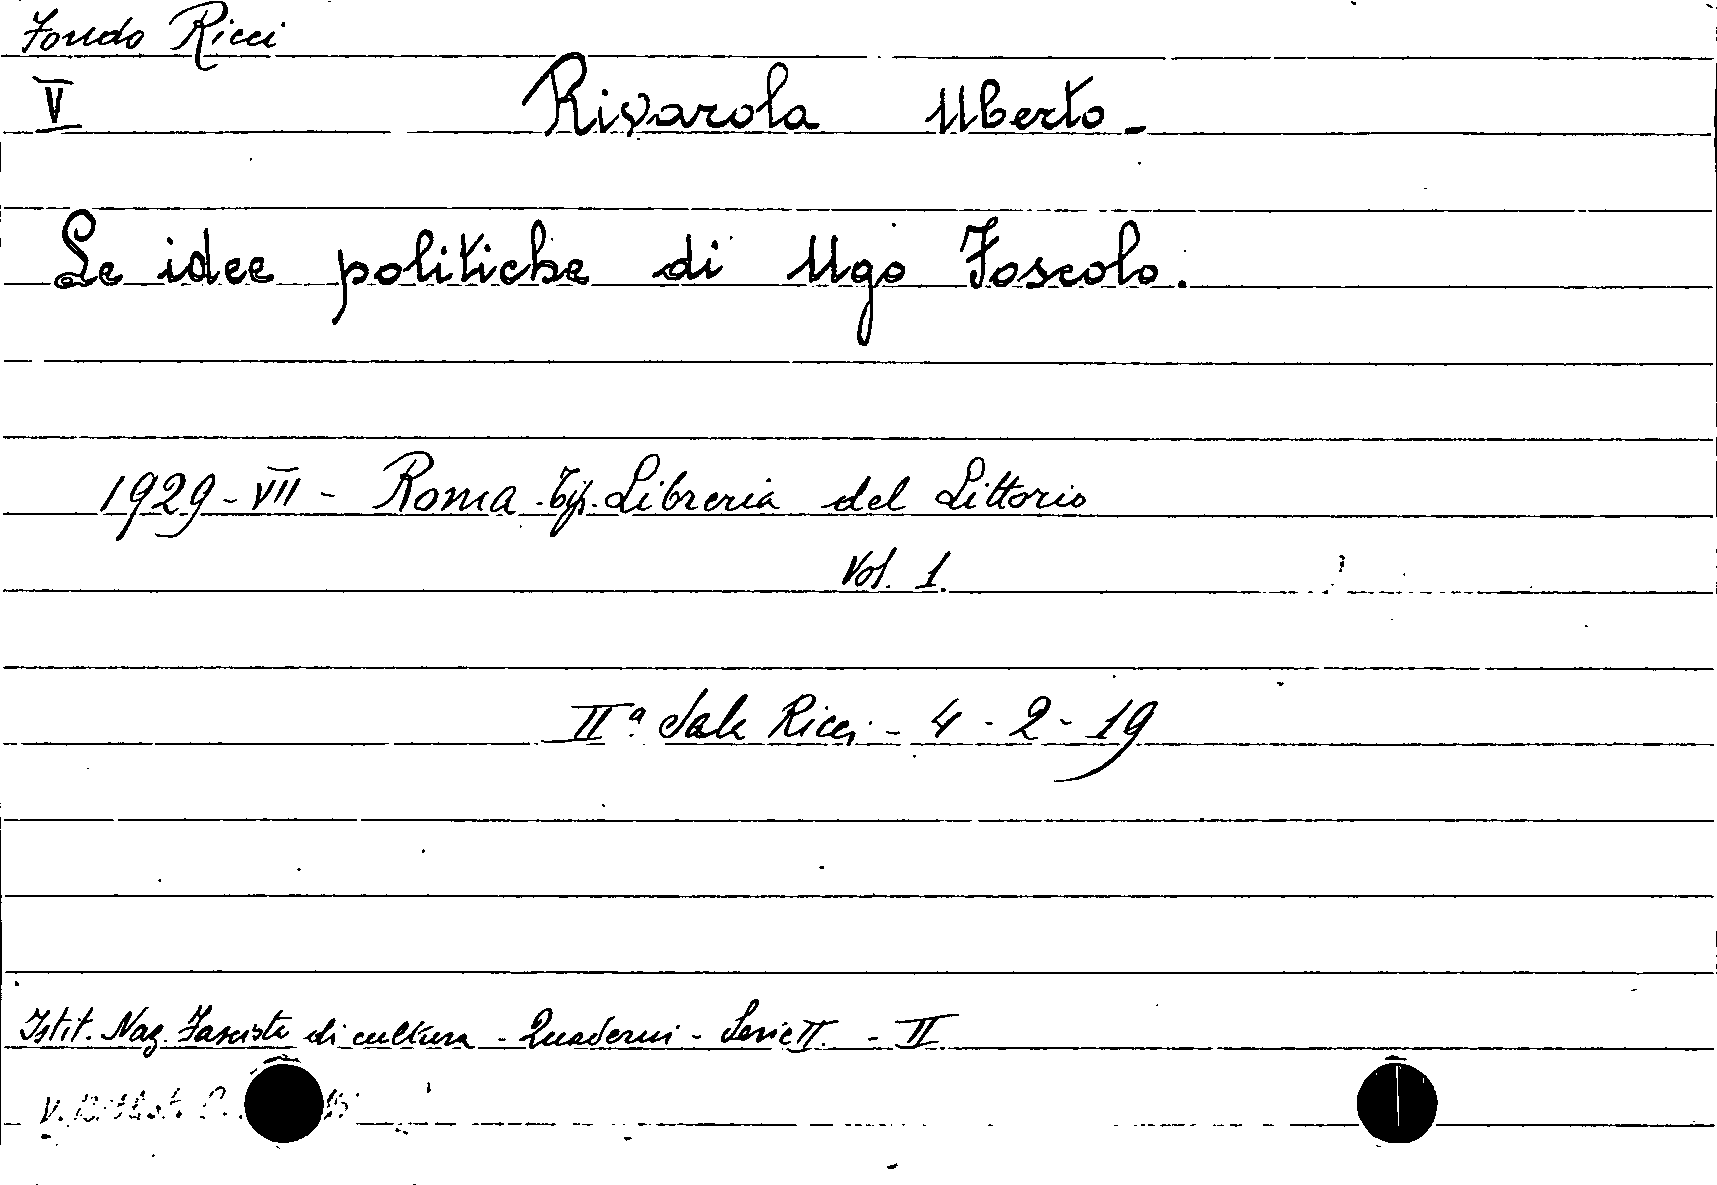 Fondo Ricci
V Rivarola Uberto -
Le idee politiche di Ugo Foscolo.
1929 - VII - Roma - Tip. Libreria del Littorio
Vol. 1.
IIª Sala Ricci - 4 - 2 - 19
Istit. Naz. Fascista di cultura - Quaderni - Serie II. - II